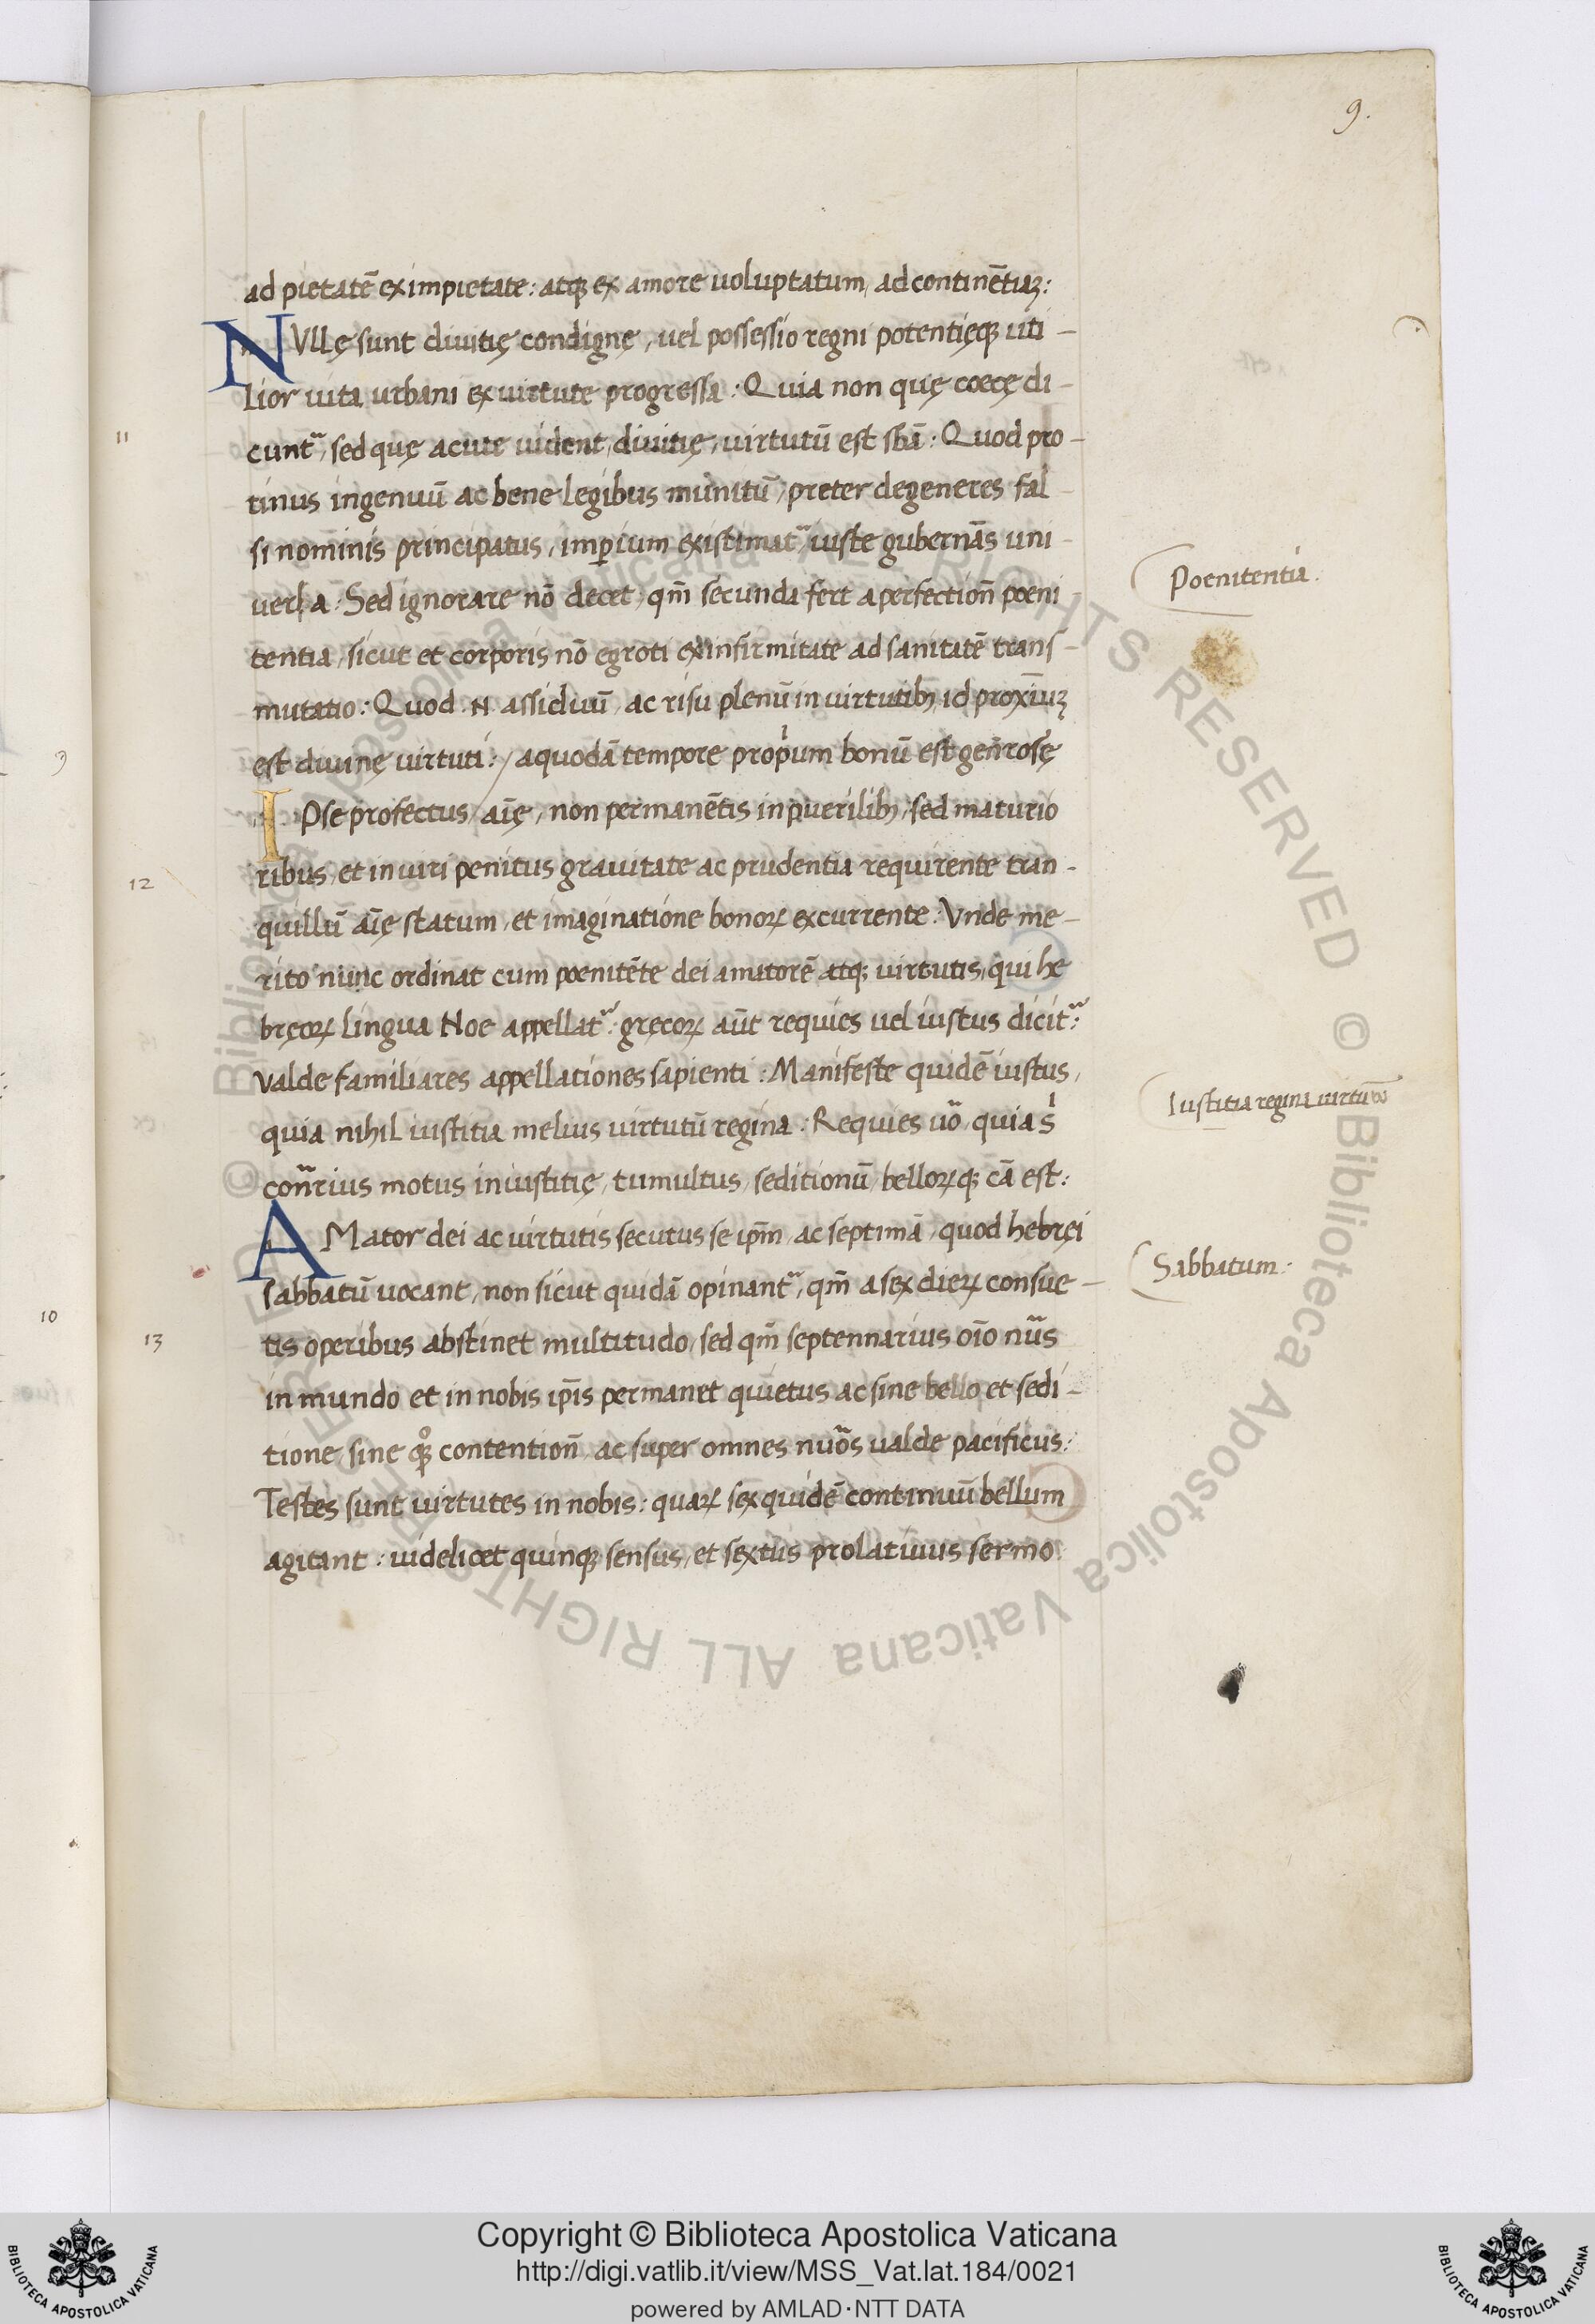 9.
ad pietatē ex impietate : atq; ex amore uoluptatum, ad continētiaʒ :
NVllę sunt diuitię condignę, uel possessio regni potentięq; uti-
lior uita urbani ex uirtute progressa : Quia non quę coecę di-
cuntr̃, sed quę acute uident, diuitię, uirtutū est sb̄a : Quod pro-
tinus ingenuū ac bene legibus munitū, preter degeneres fal
si nominis principatus, imꝑium existimatr̃, iuste gubernās uni-
uersa : Sed ignorare nō decet, qm̄ secunda fert a perfection̄ poeni-
tentia, sicut et corporis nō egroti ex infirmitate ad sanitatē trans-
mutatio : Quod .N. assiduū, ac risu plenū in uirtutibꝫ, id proxīuʒ
est diuinę uirtuti : / a quodā tempore propium bonū est gen̄rosę
IPse profectus / aīę, non permanētis in puerilibꝫ, sed maturio
ribus, et in uiri penitus grauitate ac prudentia requirente tran-
quillū aīę statum, et imaginatione bonoꝝ excurrente : Vnde me-
rito nunc ordinat cum poenitēte dei amatorē atq; uirtutis, qui he
bręoꝝ lingua Noe appellatr̃ : gręcoꝝ aūt requies uel iustus dicitr̃ :
valde familiares appellationes sapienti : Manifeste quidē iustus,
quia nihil iustitia melius uirtutū regina : Requies uō, quia s
con̄rius motus iniustitię, tumultus, seditionū, belloꝝq; cā est :
AMator dei ac uirtutis secutus se ip̄m, ac septimā, quod hebręi
sabbatū uocant, non sicut quidā opinantr̃, qm̄ a sex dieꝝ consue-
tis operibus abstinet multitudo, sed qm̄ septennarius oīo nūs
in mundo et in nobis ip̄is permanet quietus ac sine bello et sedi-
tione, sine qͦq; contention̄, ac super omnes nūos ualde pacificus :
Testes sunt uirtutes in nobis : quaꝝ sex quidē continuū bellum
agitant : uidelicet quinq; sensus, et sextus prolatiuus sermo :
11
12
13
9
10
Poenitentia.
Iustitia regina uirtutū
Sabbatum :
© Biblioteca Apostolica Vaticana ALL RIGHTS RESERVED
© Biblioteca Apostolica Vaticana ALL RIGHTS RESERVED
Copyright © Biblioteca Apostolica Vaticana
http://digi.vatlib.it/view/MSS_Vat.lat.184/0021
powered by AMLAD·NTT DATA
BIBLIOTECA APOSTOLICA VATICANA
BIBLIOTECA APOSTOLICA VATICANA